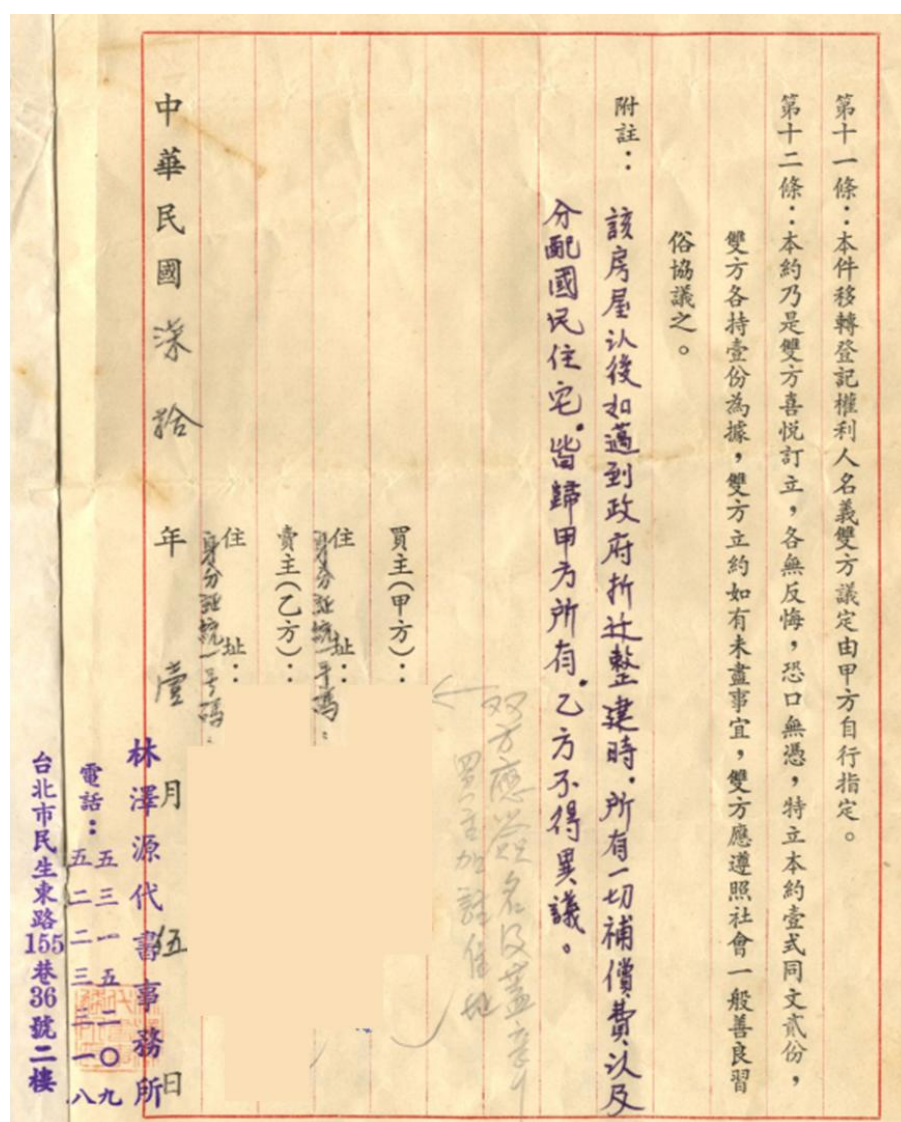 第十一條：本件移轉登記權利人名義雙方議定由甲方自行指定。
第十二條：本約乃是雙方喜悦訂立，各無反悔，恐口無憑，特立本約壹式同文貳份，
雙方各持壹份為據，雙方立約如有未盡事宜，雙方應遵照社會一般善良習
俗協議之。
附註：該房屋以後如遇到政府折迁整建時．所有一切補償費以及
分配國民住宅．皆歸甲方所有．乙方不得異議。
双方應簽名及蓋章
買主加註住址
買主(甲方)：
住址：
身分証統一号碼：
賣主(乙方)：
住址：
身分証統一号碼：
中華民國柒拾年壹月伍日
林澤源代書事務所
電話：五三一五二〇九
五二二三三一八
台北市民生東路155巷36號二樓